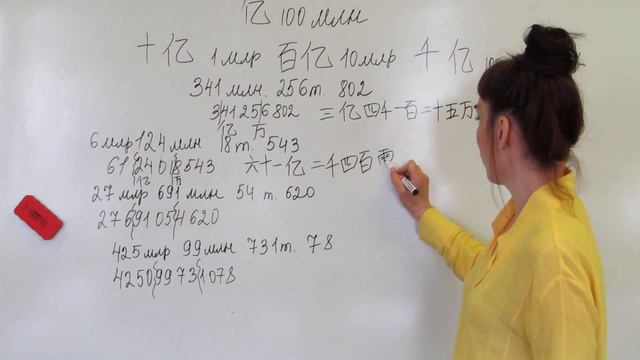 亿 100 млн
十亿 1 млр 百亿 10 млр 千亿 100
341 млн. 256 т. 802
341256802 三亿四千一百二十五万
亿 万
6 млр 124 млн 18 т. 543
6124018543 六十一亿二千四百
亿 万
27 млр 691 млн 54 т. 620
27691054620
425 млр 99 млн 731 т. 78
425099731078